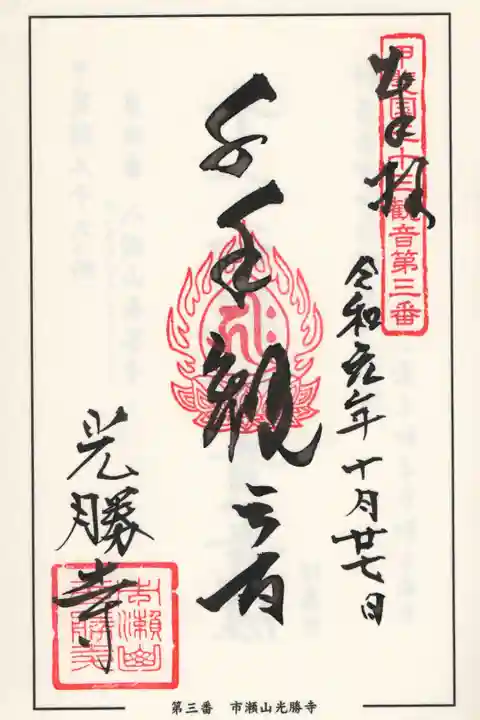 奉拝
甲斐国三十三観音第三番
令和元年十月廿七日
千手観音
光勝寺
市瀬山光勝寺
第三番 市瀬山光勝寺